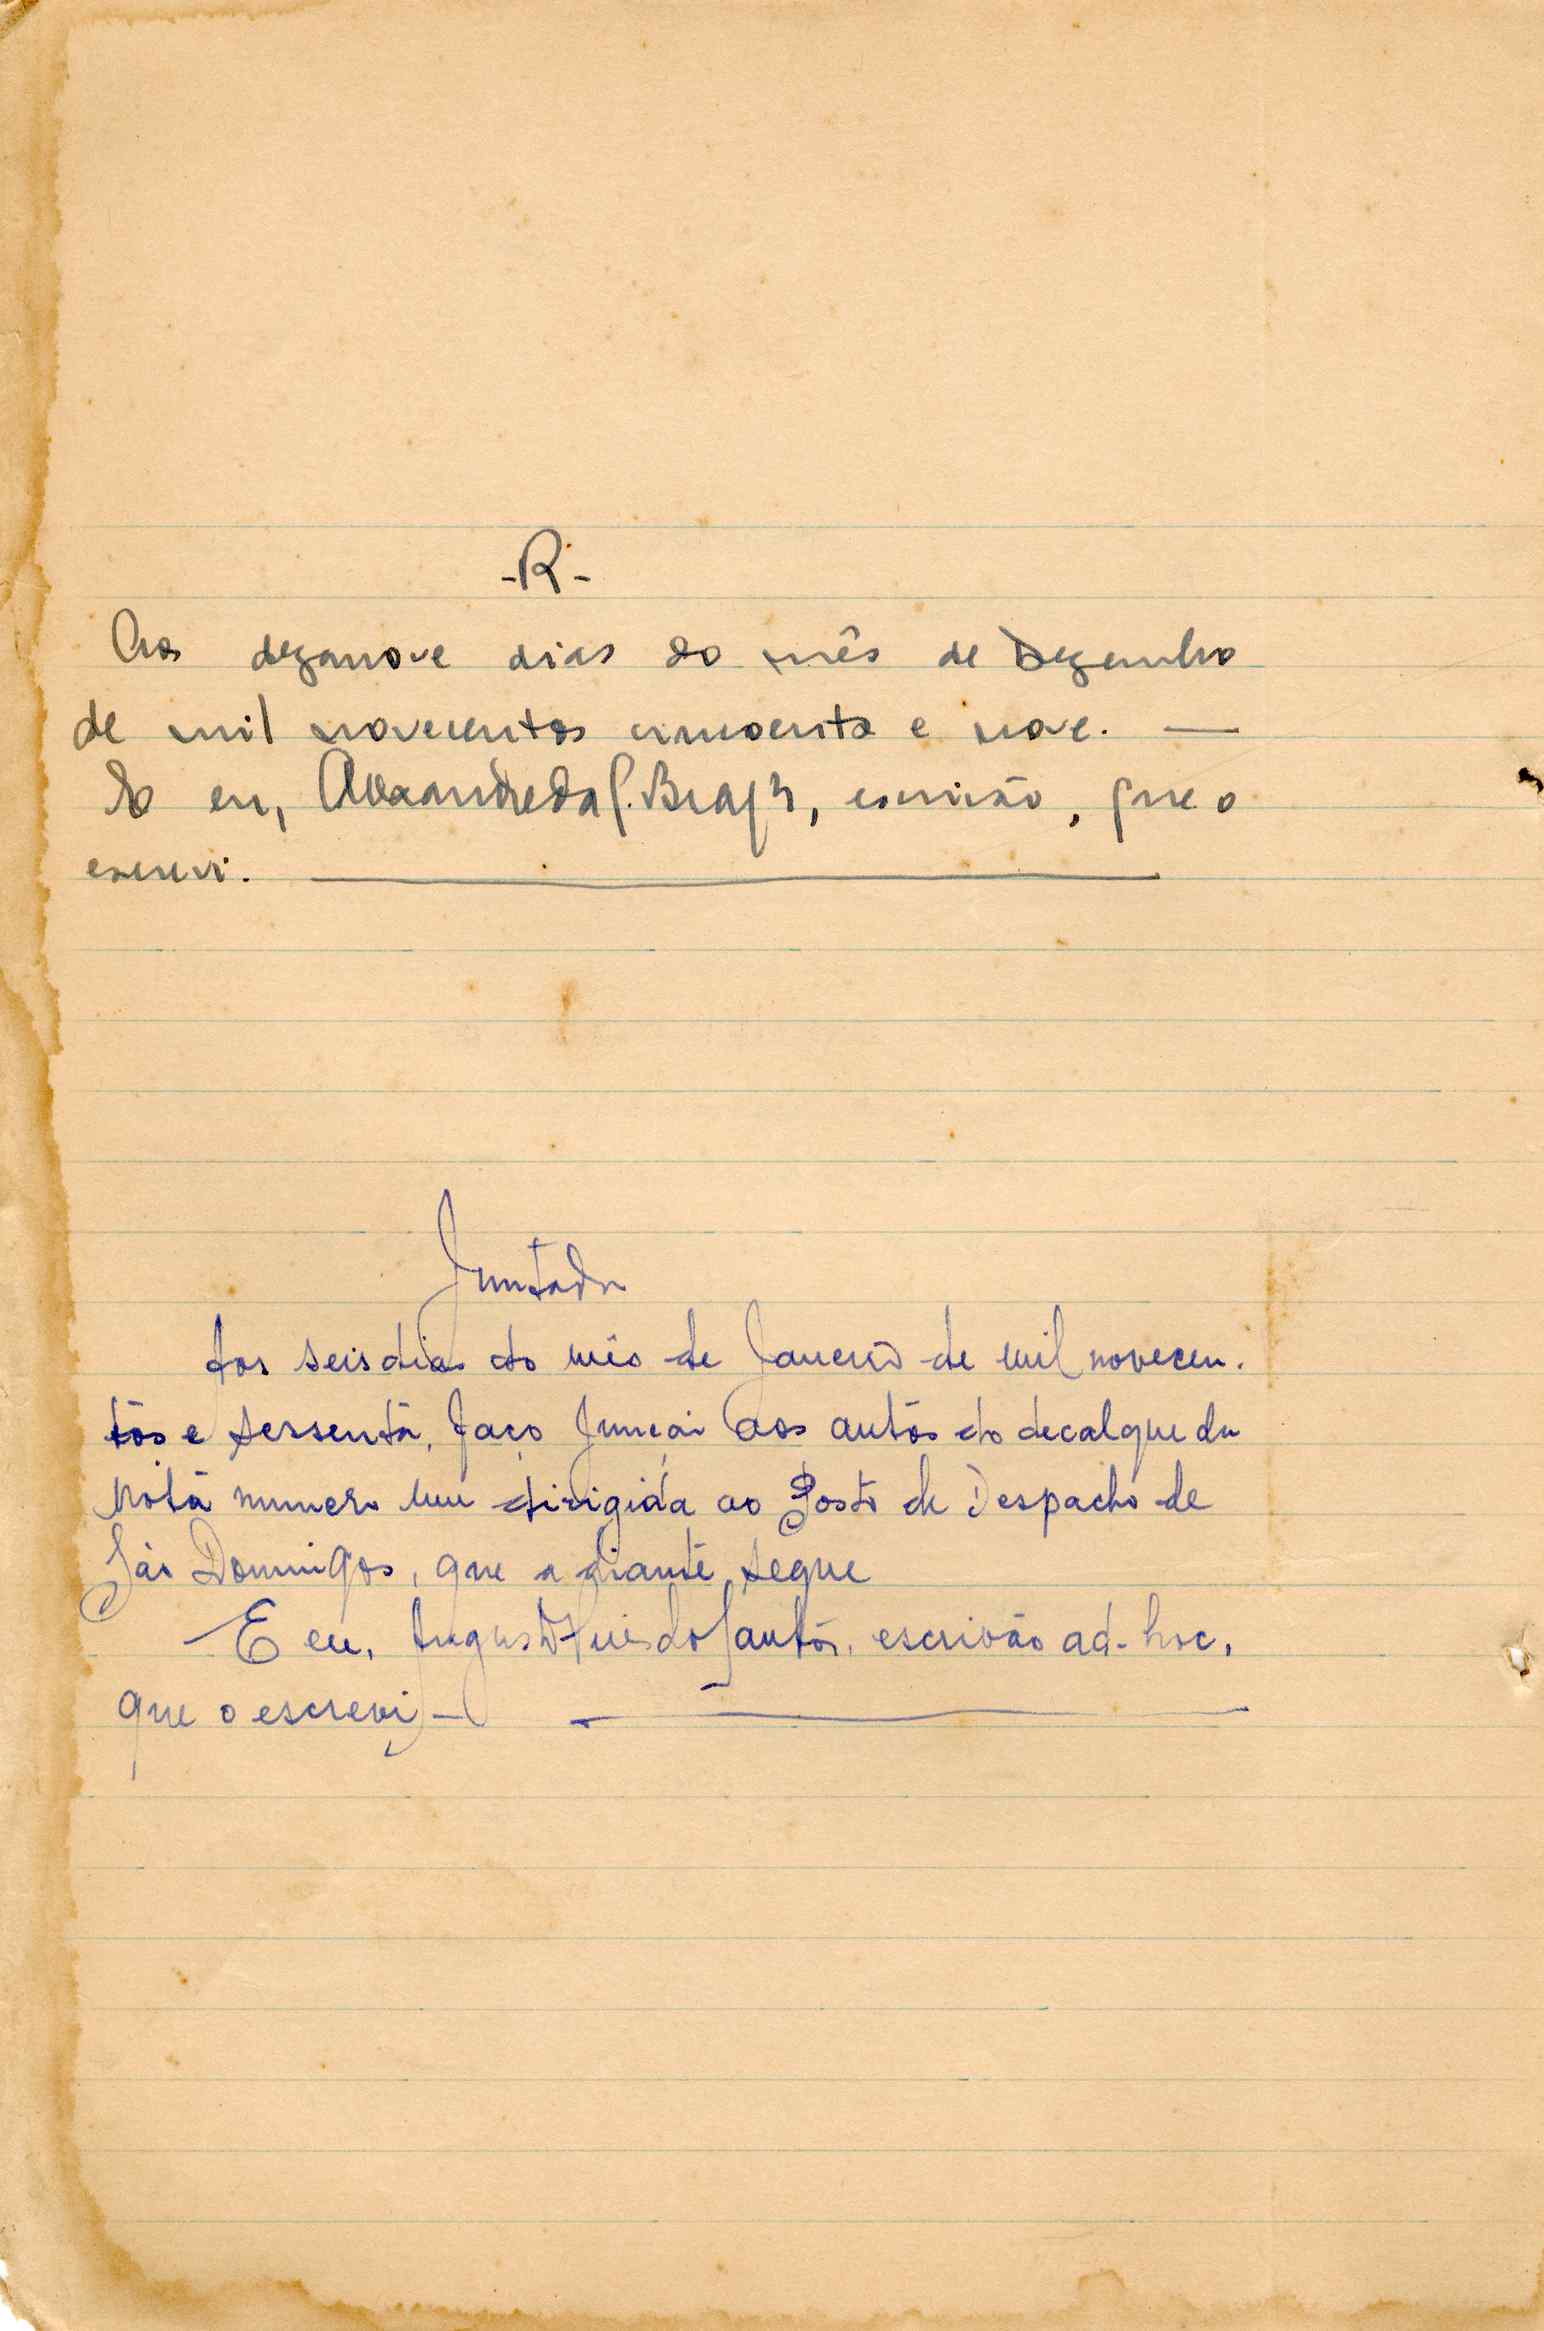 -R-
Aos dezanove dias do mês de Dezembro
de mil novecentos cincoenta e nove. —
E eu, Alexandre da C. Braga, escrivão, que o
escrevi. —
Juntada
Aos seis dias do mês de Janeiro de mil novecen-
tos e sessenta, faço junção aos autos do decalque da
nota numero um dirigida ao Posto de Despacho de
São Domingos, que a diante segue
E eu, Augusto Luis dos Santos, escrivão ad-hoc,
que o escrevi — —